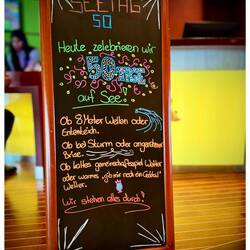 SEETAG
50
Heute zelebrieren wir
50
auf See!
Ob 8 Meter Wellen oder
Ententeich.
Ob bei Sturm oder angenehmer
Brise.
Ob kaltes gemeinschaftsspiel Wetter
oder warmes „gib mir noch ein Cocktail"
Wetter.
Wir stehen alles durch!